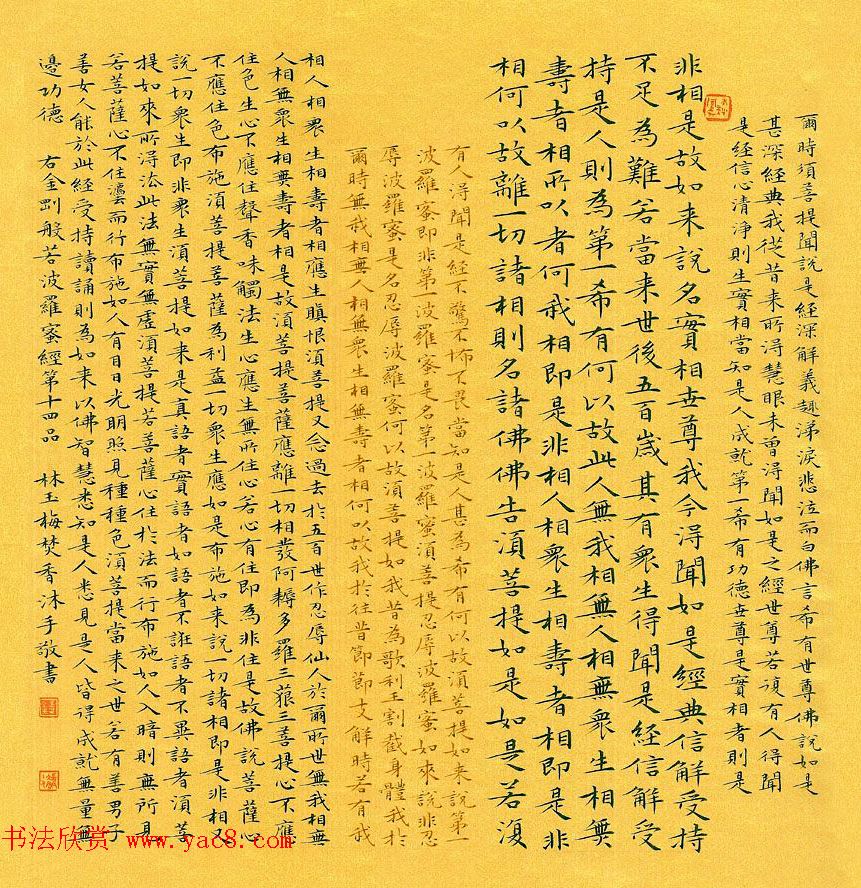 爾時須菩提聞說是經深解義趣涕淚悲泣而白佛言希有世尊佛說如是
甚深經典我從昔来所得慧眼未曾得聞如是之經世尊若復有人得聞
是經信心清淨則生實相當知是人成就第一希有功德世尊是實相者則是
非相是故如来說名實相世尊我今得聞如是經典信解受持
不足為難若當来世後五百歲其有衆生得聞是經信解受
持是人則為第一希有何以故此人無我相無人相無衆生相無
壽者相所以者何我相即是非相人相衆生相壽者相即是非
相何以故離一切諸相則名諸佛佛告須菩提如是如是若復
有人得聞是經不驚不怖不畏當知是人甚為希有何以故須菩提如来說第一
波羅蜜即非第一波羅蜜是名第一波羅蜜須菩提忍辱波羅蜜如来說非忍
辱波羅蜜是名忍辱波羅蜜何以故須菩提如我昔為歌利王割截身體我於
爾時無我相無人相無衆生相無壽者相何以故我於往昔節節支解時若有我
相人相衆生相壽者相應生瞋恨須菩提又念過去於五百世作忍辱仙人於爾所世無我相無
人相無衆生相無壽者相是故須菩提菩薩應離一切相發阿耨多羅三藐三菩提心不應
住色生心不應住聲香味觸法生心應生無所住心若心有住即為非住是故佛說菩薩心
不應住色布施須菩提菩薩為利益一切衆生應如是布施如来說一切諸相即是非相又
說一切衆生即非衆生須菩提如来是真語者實語者如語者不誑語者不異語者須菩
提如来所得法此法無實無虛須菩提若菩薩心住於法而行布施如人入暗則無所見
若菩薩心不住法而行布施如人有目日光明照見種種色須菩提當来之世若有善男子
善女人能於此經受持讀誦則為如来以佛智慧悉知是人悉見是人皆得成就無量無
邊功德 右金剛般若波羅蜜經第十四品 林玉梅焚香沐手敬書
书法欣赏 www.yac8.com